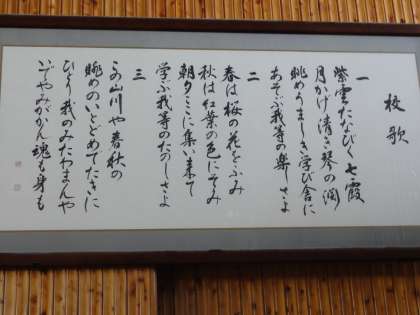 校歌
一
紫雲たなびく七霞
月かげ清き琴の湖
眺めうましき学び舎に
あそぶ我等の楽しさよ
二
春は桜の花をふみ
秋は紅葉の色にそみ
朝夕ここに集い来て
学ぶ我等のたのしさよ
三
この山川や春秋の
眺めのいとどめでたきに
ひとり我のみたわまんや
いでやみがかん魂も身も